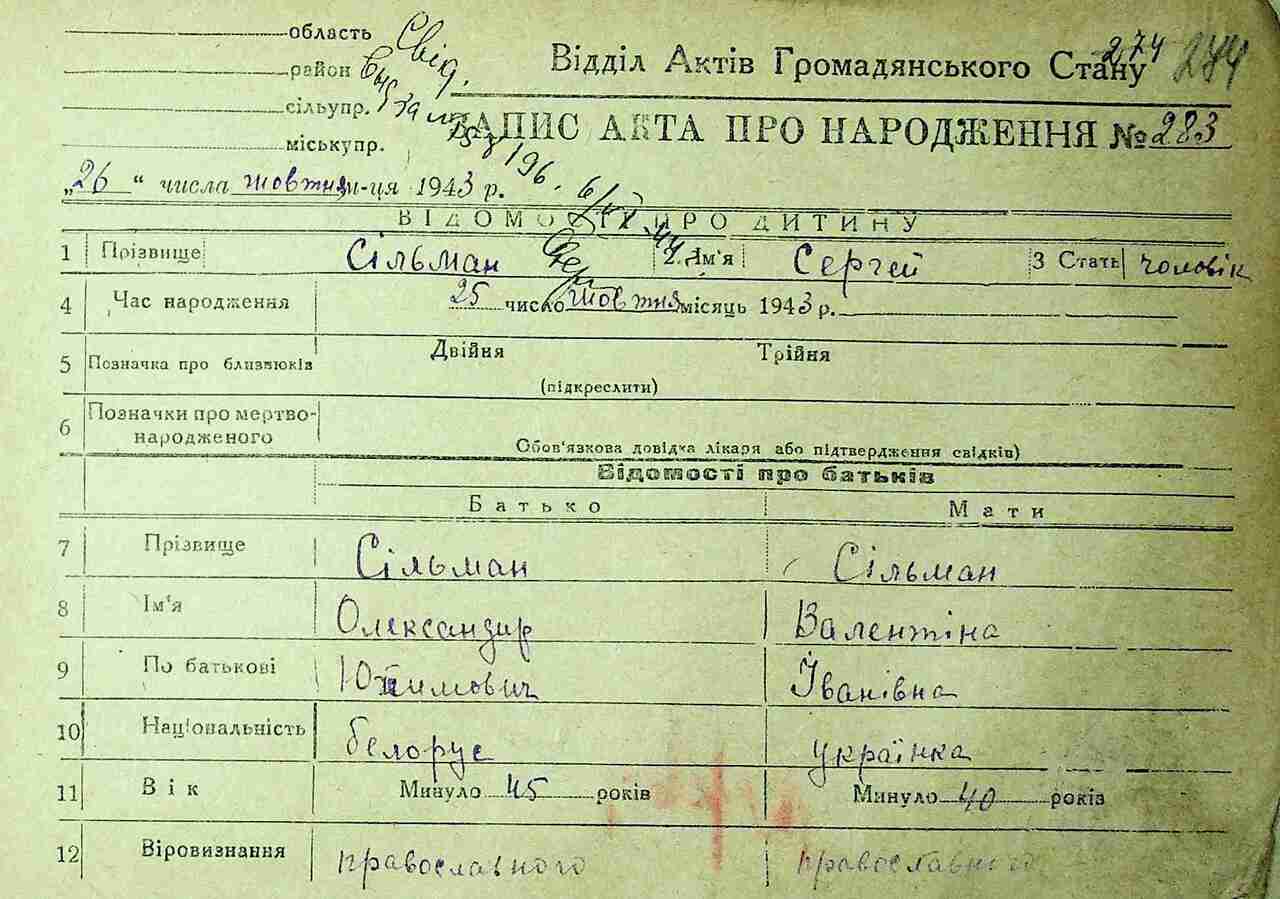 область
район
сільупр.
міськупр.
Свід.
196.
Відділ Актів Громадянського Стану
274
274
ЗАПИС АКТА ПРО НАРОДЖЕННЯ № 283
„26“ числа жовтня м-ця 1943 р.
ВІДОМОСТІ ПРО ДИТИНУ
1 Прізвище Сільман 2 Ім'я Сергей 3 Стать чоловік
4 Час народження 25 число жовтня місяць 1943 р.
5 Позначка про близнюків Двійня Трійня
(підкреслити)
6 Позначки про мертво-
народженого
Обов'язкова довідка лікаря або підтвердження свідків)
Відомості про батьків
Батько Мати
7 Прізвище Сільман Сільман
8 Ім'я Олександир Валентіна
9 По батькові Юхимович Іванівна
10 Національність белорус українка
11 Вік Минуло 45 років Минуло 40 років
12 Віровизнання православного православного